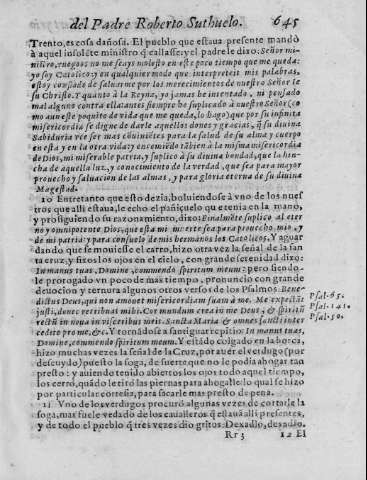 del Padre Roberto Suthuelo. 645
Trento, es cosa dañosa. El pueblo que estaua presente mandò
à aquel insolẽte ministro q̃ callasse; y el padre le dixo: Señor mi-
nistro, ruegoos no me seays molesto en este poco tiempo que me queda:
yo soy Catolico: y en qualquier modo que interpreteis mis palabras,
estoy confiado de saluarme por los merecimientos de nuestro Señor Ie
su Christo. Y quanto à la Reyna, yo jamas he intentado, ni pensado
mal alguno contra ella: antes siempre he suplicado à nuestro Señor (co
mo aun este poquito de vida que me queda, lo hago) que por su infinita
misericordia se digne de darle aquellos dones y gracias, q̃ su diuina
Sabiduria vee ser mas cõuinietes para la salud de su alma y cuerpo
en esta y en la otra vida: y encomiẽdo tãbien à la misma misericordia
de Dios, mi miserable patria, y suplico à su diuina bondad, que la hin-
cha de aquella luz, y conocimiento de la verdad, que sea para mayor
prouecho y saluacion de las almas, y para gloria eterna de su diuina
Magestad.
10 Entretanto que esto dezia, boluiendose à vno de los nues
tros que alli estaua, le echo el pañiçuelo que tenia en la mano,
y prosiguiendo su razonamiento, dixo: Finalmẽte suplico al eter
no y omnipotente Dios, que esta mi muerte sea para prouecho mio, y
de mi patria: y para consuelo de mis hermanos los Catolicos. Y aguar
dando que se mouiesse el carro, hizo otra vez la señal de la san
ta cruz, y fixos los ojos en el cielo, con grande serenidad dixo:
In manus tuas, Domine, commendo spiritum meum: pero siendo-
le prorogado vn poco de mas tiempo, pronunciò con grande
deuocion y ternura algunos otros versos de los Psalmos. Bene
dictus Deus, qui non amouet misericordiam suam à me. Me expectãt Psal. 65.
iusti, donec retribuas mihi. Cor mundum crea in me Deus, & spiritũ Psal. 141.
rectũ in noua in visceribus meis. Sancta Maria & omnes sancti inter Psal. 50.
cedite pro me, &c. Y tornãdose a santiguar repitio: In manus tuas,
Domine, commendo spiritum meum. Y estãdo colgado en la horca,
hizo muchas vezes la señal de la Cruz, por auer el verdugo (por
descuydo) puesto la soga, de suerte que no le podia ahogar tan
presto: y auiendo tenido abiertos los ojos todo aquel tiempo,
los cerrò, quãdo le tirò las piernas para ahogalle: lo qual se hizo
por particular cortesia, para sacarle mas presto de pena.
11 Vno de los verdugos procurò algunas vezes de cortarle la
soga, mas fuele vedado de los caualleros q̃ estauã alli presentes,
y de todo el pueblo q̃ tres vezes dio gritos: Dexadlo, dexadlo.
Rr 3 12 El